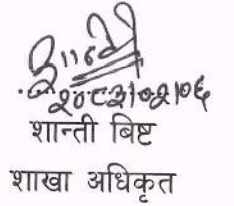 २०८३।०२।०६
शान्ती बिष्ट
शाखा अधिकृत